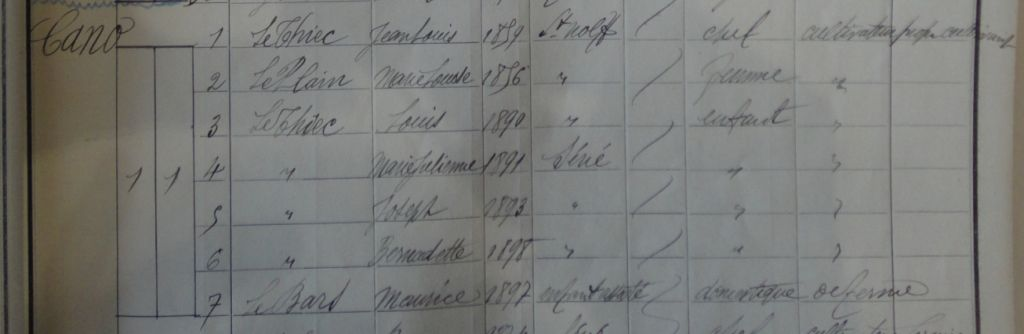 Cano 1 Le Thiec Jean Louis 1859 St Nolff / chef cultivateur
2 Le Plain Marie Louise 1856 " / femme "
3 Le Thiec Louis 1890 " / enfant "
1 1 4 " Marie Julienne 1891 Séné / " "
5 " Joseph 1893 " / " "
6 " Bernadette 1898 " / " "
7 Le Bars Maurice 1897 enfant assisté domestique de ferme